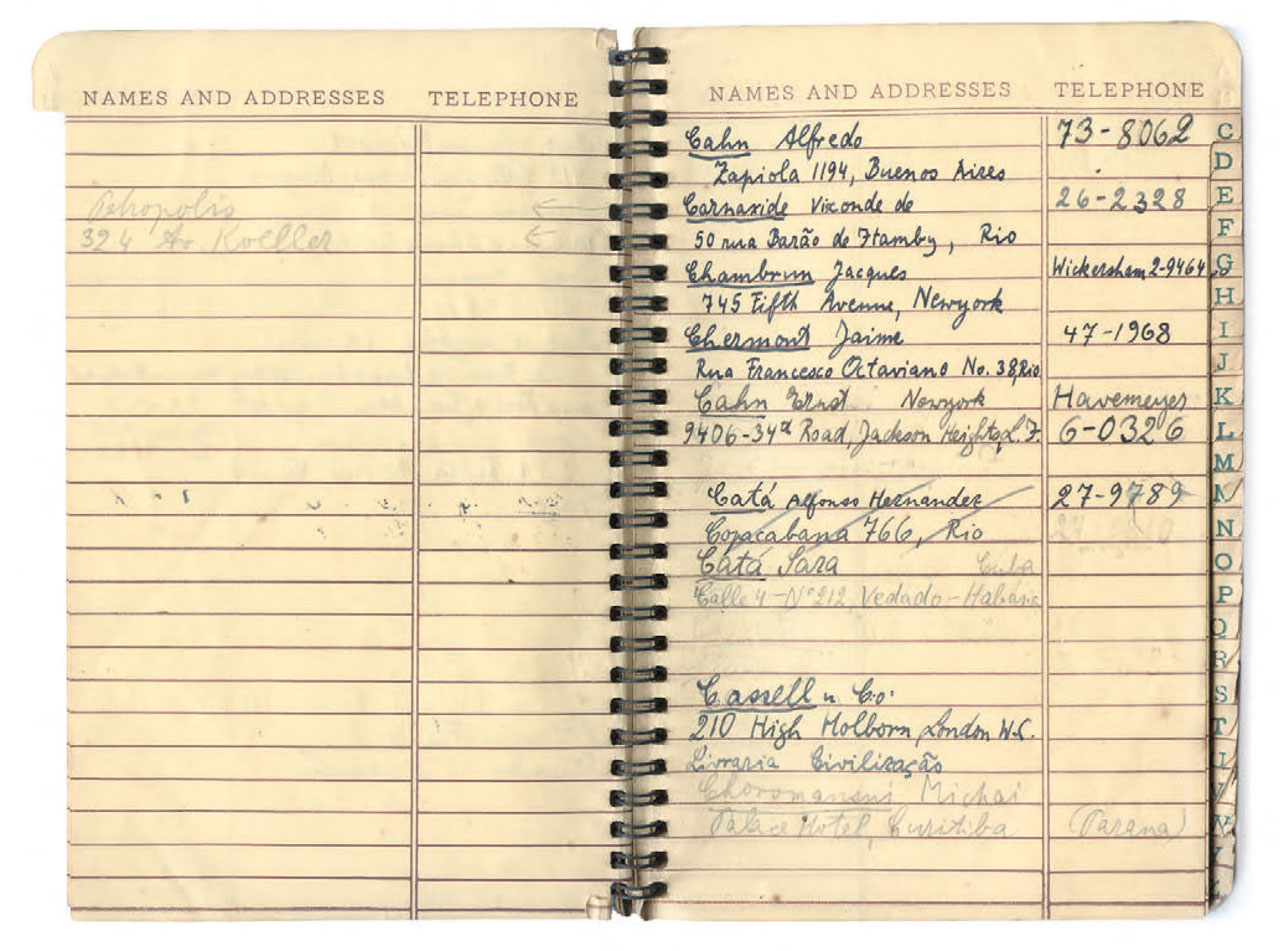 NAMES AND ADDRESSES TELEPHONE
Petropolis
324 Av. Koeller
NAMES AND ADDRESSES TELEPHONE
Cahn Alfredo 73-8062
Zapiola 1194, Buenos Aires
Carnaxide Visconde de 26-2328
50 rua Barão de Itamby, Rio
Chambrun Jacques Wickersham 2-9464
745 Fifth Avenue, Newyork
Chermont Jaime 47-1968
Rua Francesco Octaviano No. 38, Rio
Cahn Ernst Newyork Havemeyer
9406-34th Road, Jackson Heights, L.I. 6-0326
Catá Alfonso Hernandez 27-9789
Copacabana 766, Rio
Catá Sara Cuba
Calle 4 - Nº 212, Vedado - Habana
Cassell u Co.
210 High Holborn, London W.C.
Livraria Civilização
Choromanski Michai
Palace Hotel, Curitiba (Parana)
C
D
E
F
G
H
I
J
K
L
M
N
O
P
Q
R
S
T